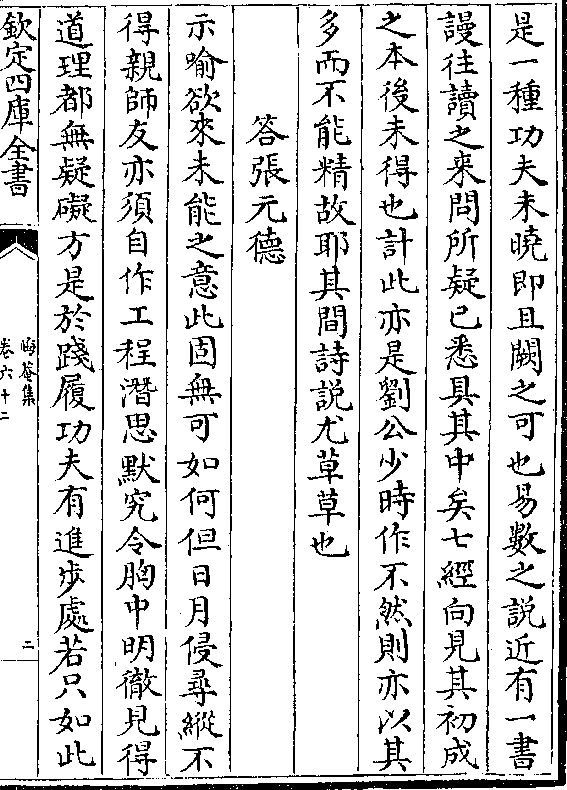 是一種功夫未曉即且闕之可也易數之説近有一書
謾往讀之来問所疑已悉具其中矣七經向見其初成
之本後未得也計此亦是劉公少時作不然則亦以其
多而不能精故耶其間詩説尤草草也
答張元德
示喻欲來未能之意此固無可如何但日月侵尋縱不
得親師友亦須自作工程潛思默究令胸中明徹見得
道理都無疑礙方是於踐履功夫有進步處若只如此
欽定四庫全書
晦菴集
卷六十二
二